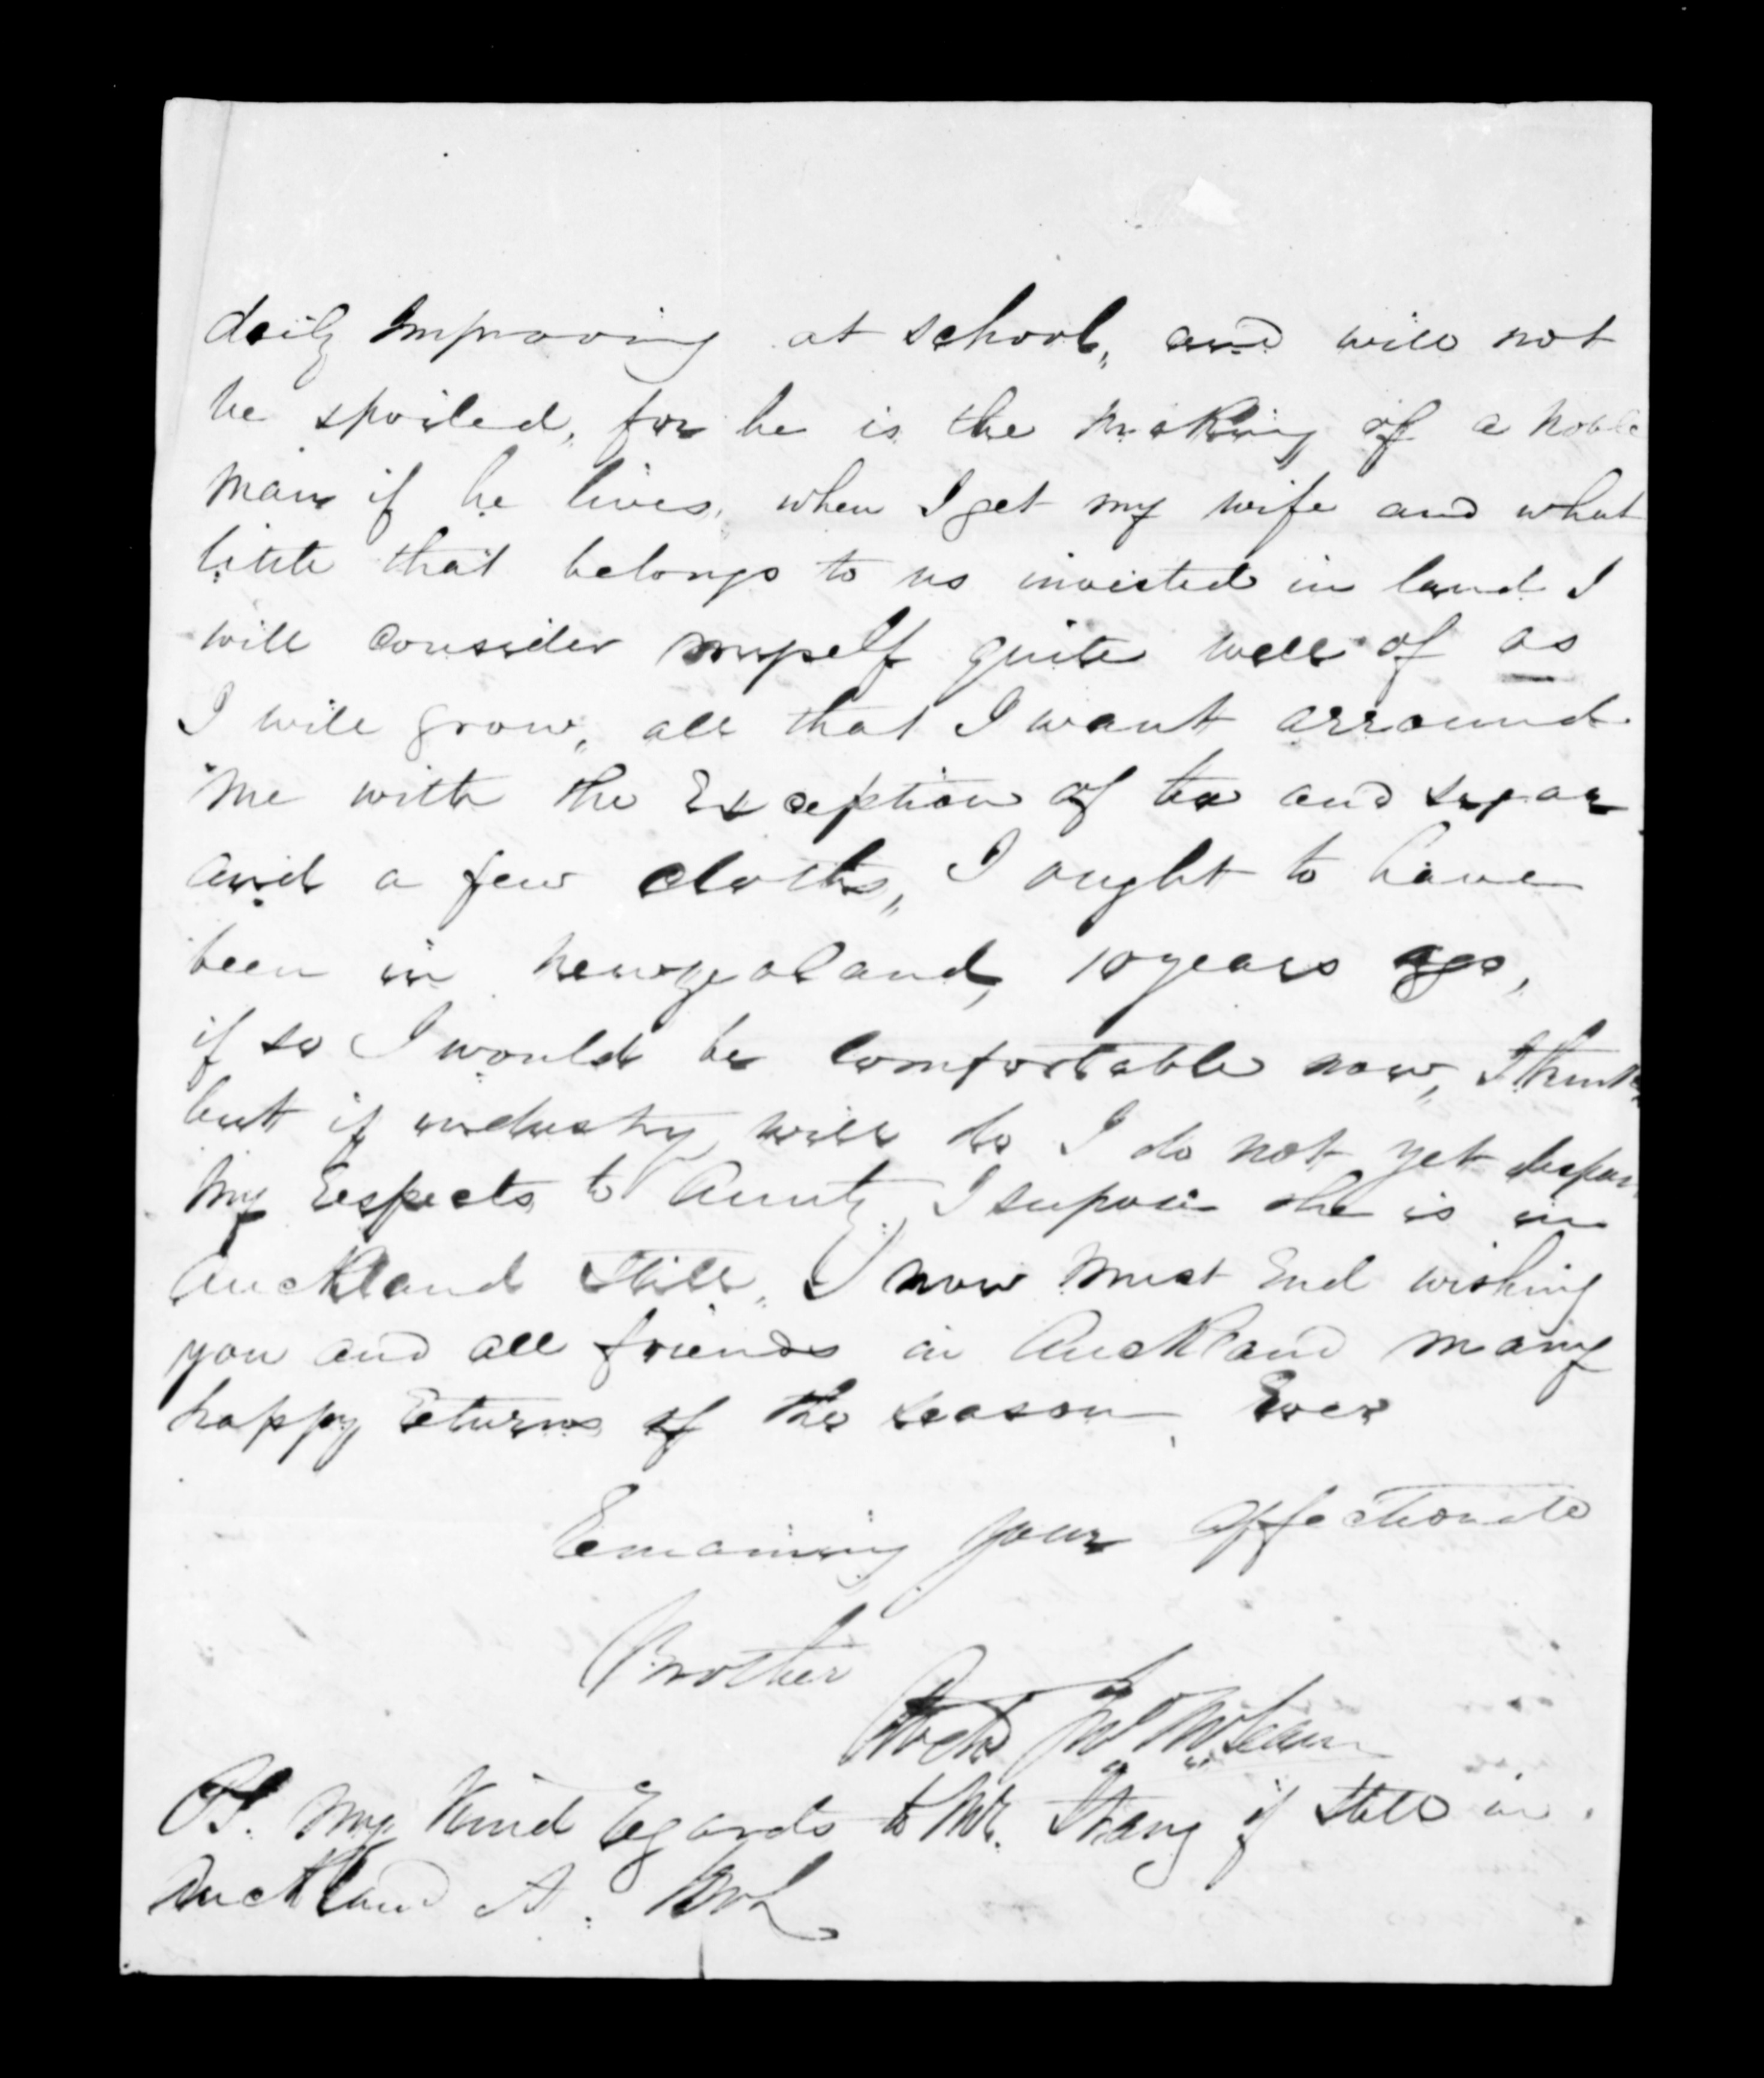 daily Improoving at school,, and will not
be spoiled, for he is the making of a noble
man if he lives, when I get my wife and what
little that belongs to us invested in land I
will consider myself quite well of as
I will grow,, all that I want arround
me with the Exception of tea and sugar
and a few cloths,, I ought to have
been in newzealand, 10 years ago,
if so I would be comfortable now,, I think
but if industry will do I do not yet despair
My Respects to Aunty, I supose she is in
Auckland still,, I now must End wishing
you and all friends in Auckland many
happy Returns of the season Ever
Remaining your affectionate
Brother
Archd Jno McLean
PS. My Kind Regards to Mr. Strang if still in
Auckland A. McL